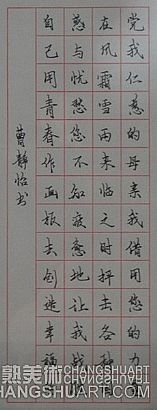 党我仁慈的母亲我借用您的力
在风霜雪雨来临之时抨去各
惑与忧愁您不知疲惫地让我战
自己用青春作画报去创造幸福
曹静怡书
熟美術 CHANGSHUART
HANGSHUART.COM